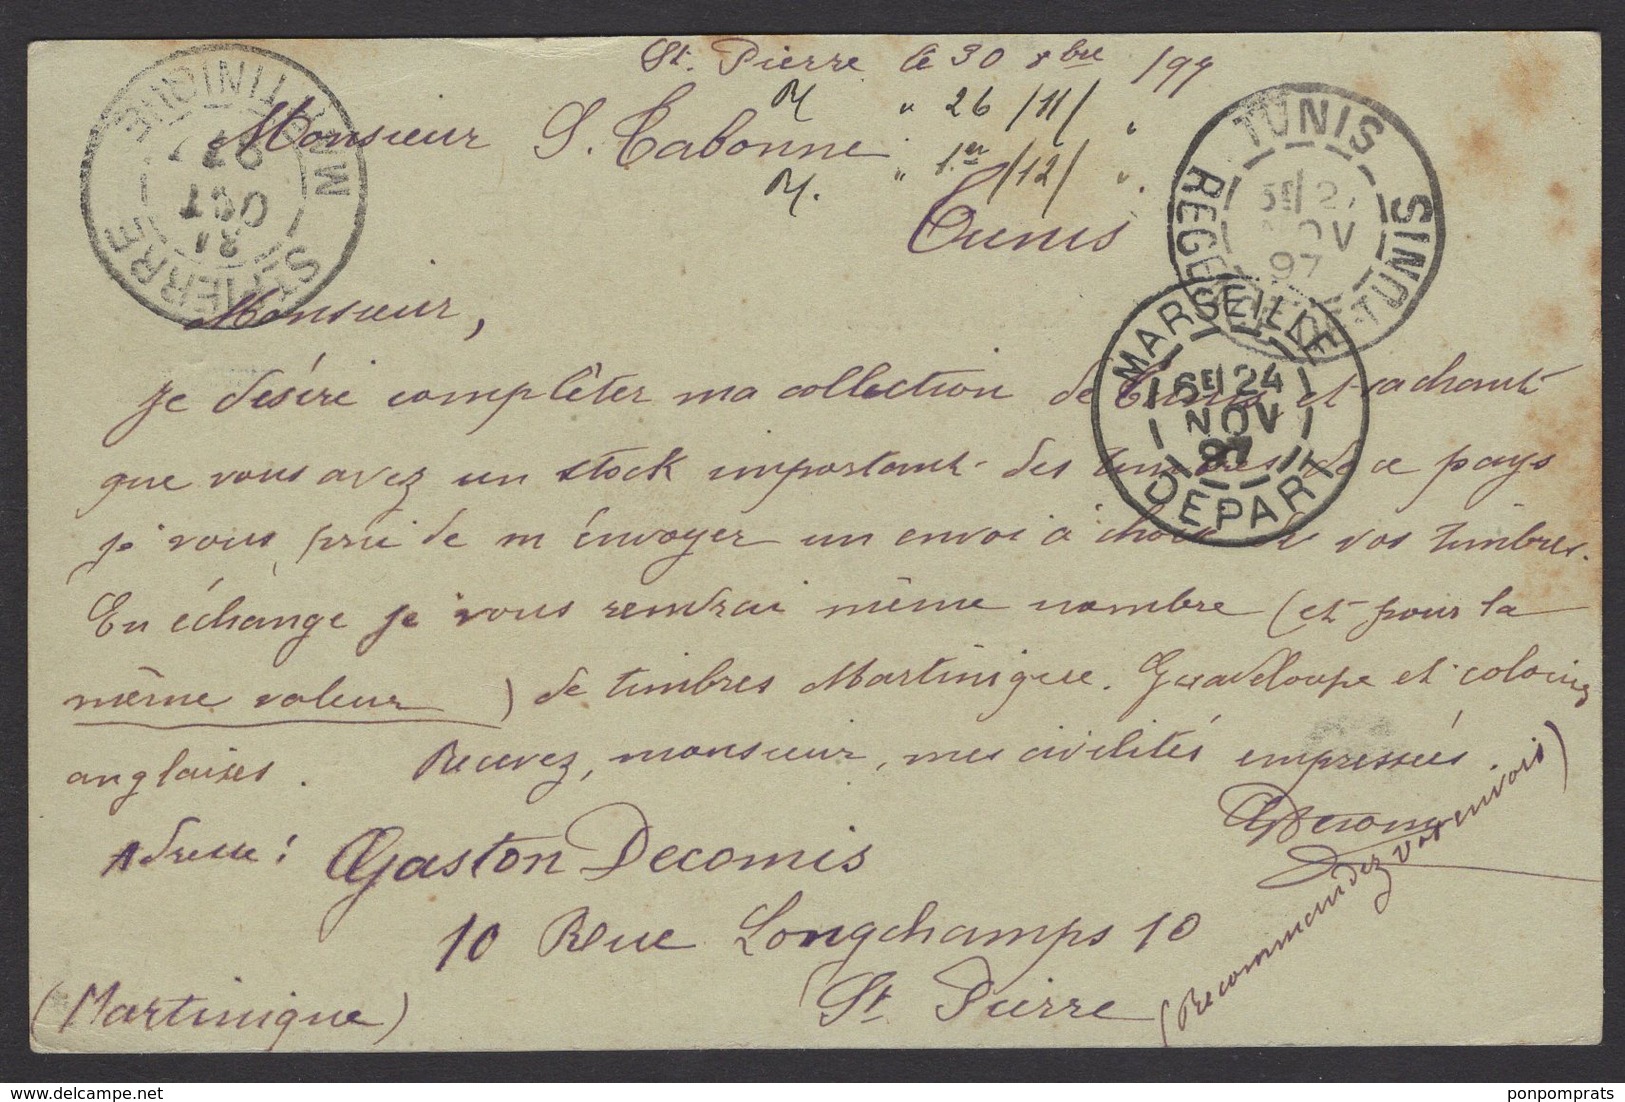 St. Pierre le 30 8bre /97
R " 26 /11/ "
Monsieur S. Tabonne
R. " 1er /12/ ".
Tunis
MARTINIQUE
ST PIERRE
TUNIS
REGENCE DE TUNIS
NOV
97
MARSEILLE
6E/24
NOV
97
DEPART
Monsieur,
Je désire complêter ma collection de Tunis et sachant
que vous avez un stock important des timbres de ce pays
je vous prie de m'envoyer un envoi à choix de vos timbres.
En échange je vous rendrai même nombre (et pour la
même valeur) de timbres Martinique. Guadeloupe et colonies
anglaises. Recevez, monsieur, mes civilités empressées.
GDecomis
Adresse: Gaston Decomis
10 Rue Longchamps 10
St Pierre
(Martinique)
(Recommandez vos envois)
ponpomprats